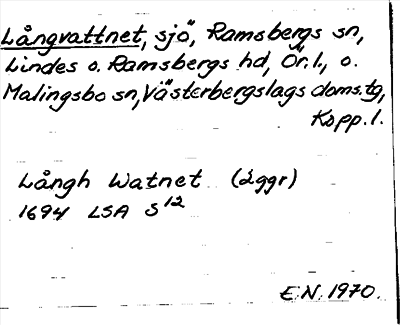 Långvattnet, sjö, Ramsbergs sn,
Lindes o. Ramsbergs hd, Ör.l., o.
Malingsbo sn, Västerbergslags doms.tg,
Kopp.l.
Långh Watnet (2ggr)
1694 LSA S12
E.N. 1970.